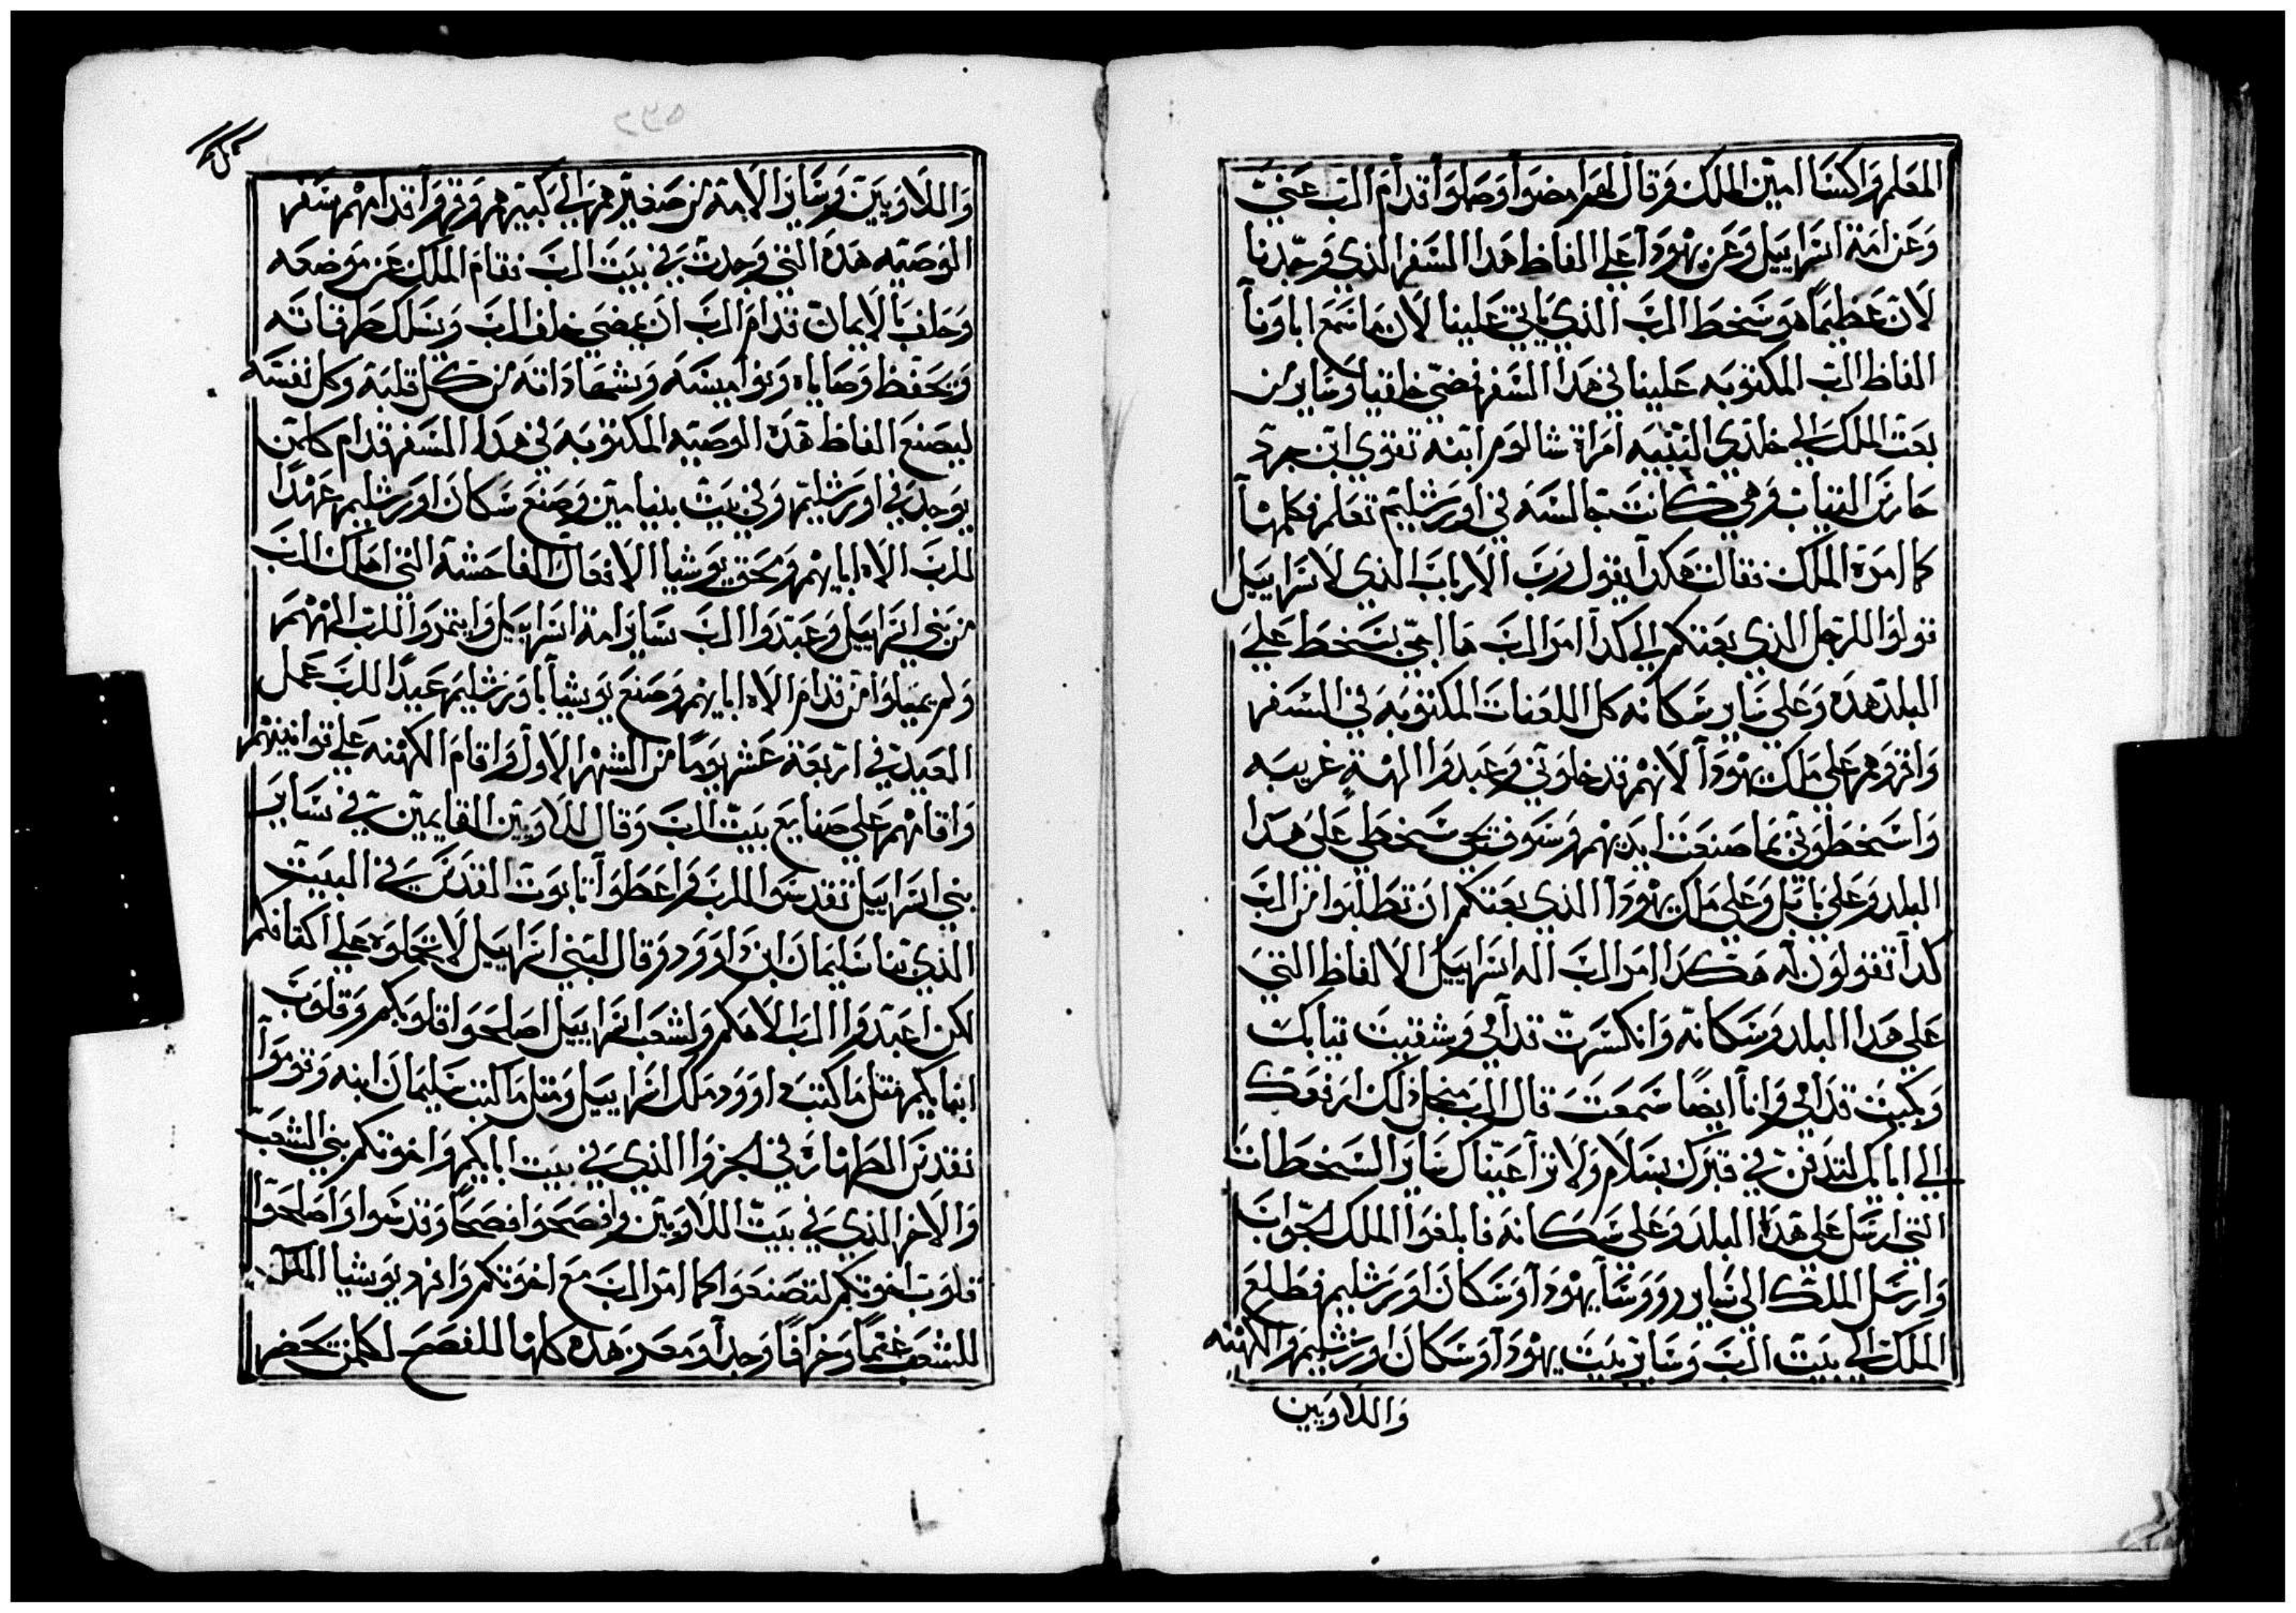 المعلم واكسا امين الملك وقال لهم امضوا وصلوا قدام الرب عني
وعن امة اسراييل وعن يهودا علي الفاظ هدا السفر الذي وجدنا
لان عظيما هو سخط الرب الذي ياتي علينا لان ما سمع اباونا
الفاظ الرب المكتوبه علينا في هدا السفر فمضي خلقيا وساير من
بعت الملك الي خلدي النبيه امراة شالوم ابنه تقوي ابن جرد
حارس التياب وهي كانت جالسه في اورشليم تعلم فكلمها
كما امره الملك فقالت هكدا يقول رب الارباب الذي لاسراييل
قولوا للرجل الذي بعتكم الي كدا امر الرب ها اجي بسخط علي
البلد هده وعلي ساير سكانه كل اللعنات المكتوبه في السفر
واقروهم علي ملك يهودا لانهم قد خلوني وعبدوا الهة غريبه
واسخطوني بما صنعت ايديهم وسوف يجي سخطي علي هدا
البلد وعلي بابل وعلي ملك يهودا الذي بعتكم ان تطلبوا من الرب
كدا تقولون له هكدا امر الرب اله اسراييل الالفاظ التي
علي هدا البلد وسكانه وانكسرت قدامي وشقيت تيابك
وبكيت قدامي وانا ايضا سمعت قال الرب من اجل دلك ارفعك
الي ابايك لتدفن في قبرك بسلام ولا ترا عيناك ساير السخطات
التي ارسل علي هده البلد وعلي سكانه فابلغوا الملك الجواب
وارسل الملك الي ساير رووسا يهودا وسكان اورشليم فطلع
الملك الي بيت الرب وساير بيت يهودا وسكان اورشليم والكهنه
واللاويين
واللاويين وساير الامة من صغيرهم الي كبيرهم وقرو قدامهم سفر
الوصيه هده التي وجدت في بيت الرب فقام الملك عن موضعه
وحلف بالايمان قدام الرب ان يمضي خلف الرب ويسلك طرقاته
ويحفظ وصاياه ونواميسه وشهاداته من كل قلبه وكل نفسه
ليصنع الفاظ هده الوصيه المكتوبه في هدا السفر قدام كلمن
يوجد في اورشليم وفي بيت بنيامين وصنع سكان اورشليم عهدا
للرب الاه ابايهم ومحق يوشيا الافعال الفاحشة التي اهلك الرب
من بني اسراييل وعبدوا الرب ساير امة اسراييل وايتمروا للرب الههم
ولم يميلوا من قدام الاه ابايهم وصنع يوشيا باورشليم عيدا للرب عمل
العيد في اربعة عشر يوما من الشهر الاول واقام الكهنه علي قوانينهم
واقامهم علي صنايع بيت الرب وقال للاويين القايمين في ساير
بني اسراييل تقدسوا للرب واعطوا تابوت القدس في البيت
الذي بنا سليمان ابن داوود وقال لبني اسراييل لا تحملوه علي اكتافكم
لكن اعبدوا الرب الاهكم ولشعب اسراييل اصلحوا قلوبكم وقلوب
ابنايكم متل ما كتب داوود ملك اسراييل ومتل ما كتب سليمان ابنه وقوموا
بقدس الطهارة في الجزوا الذي في بيت ابايكم واخوتكم بني الشعب
والاخر الذي في بيت اللاويين وافصحوا فصحا وقدسوا واصلحوا
قلوب اخوتكم لتصنعوا كما امر الرب مع اخوتكم وافرد يوشيا الملك
للشعب غنما وخرافا وجدا ومعز هده كلها للفصح لكلمن يحضر